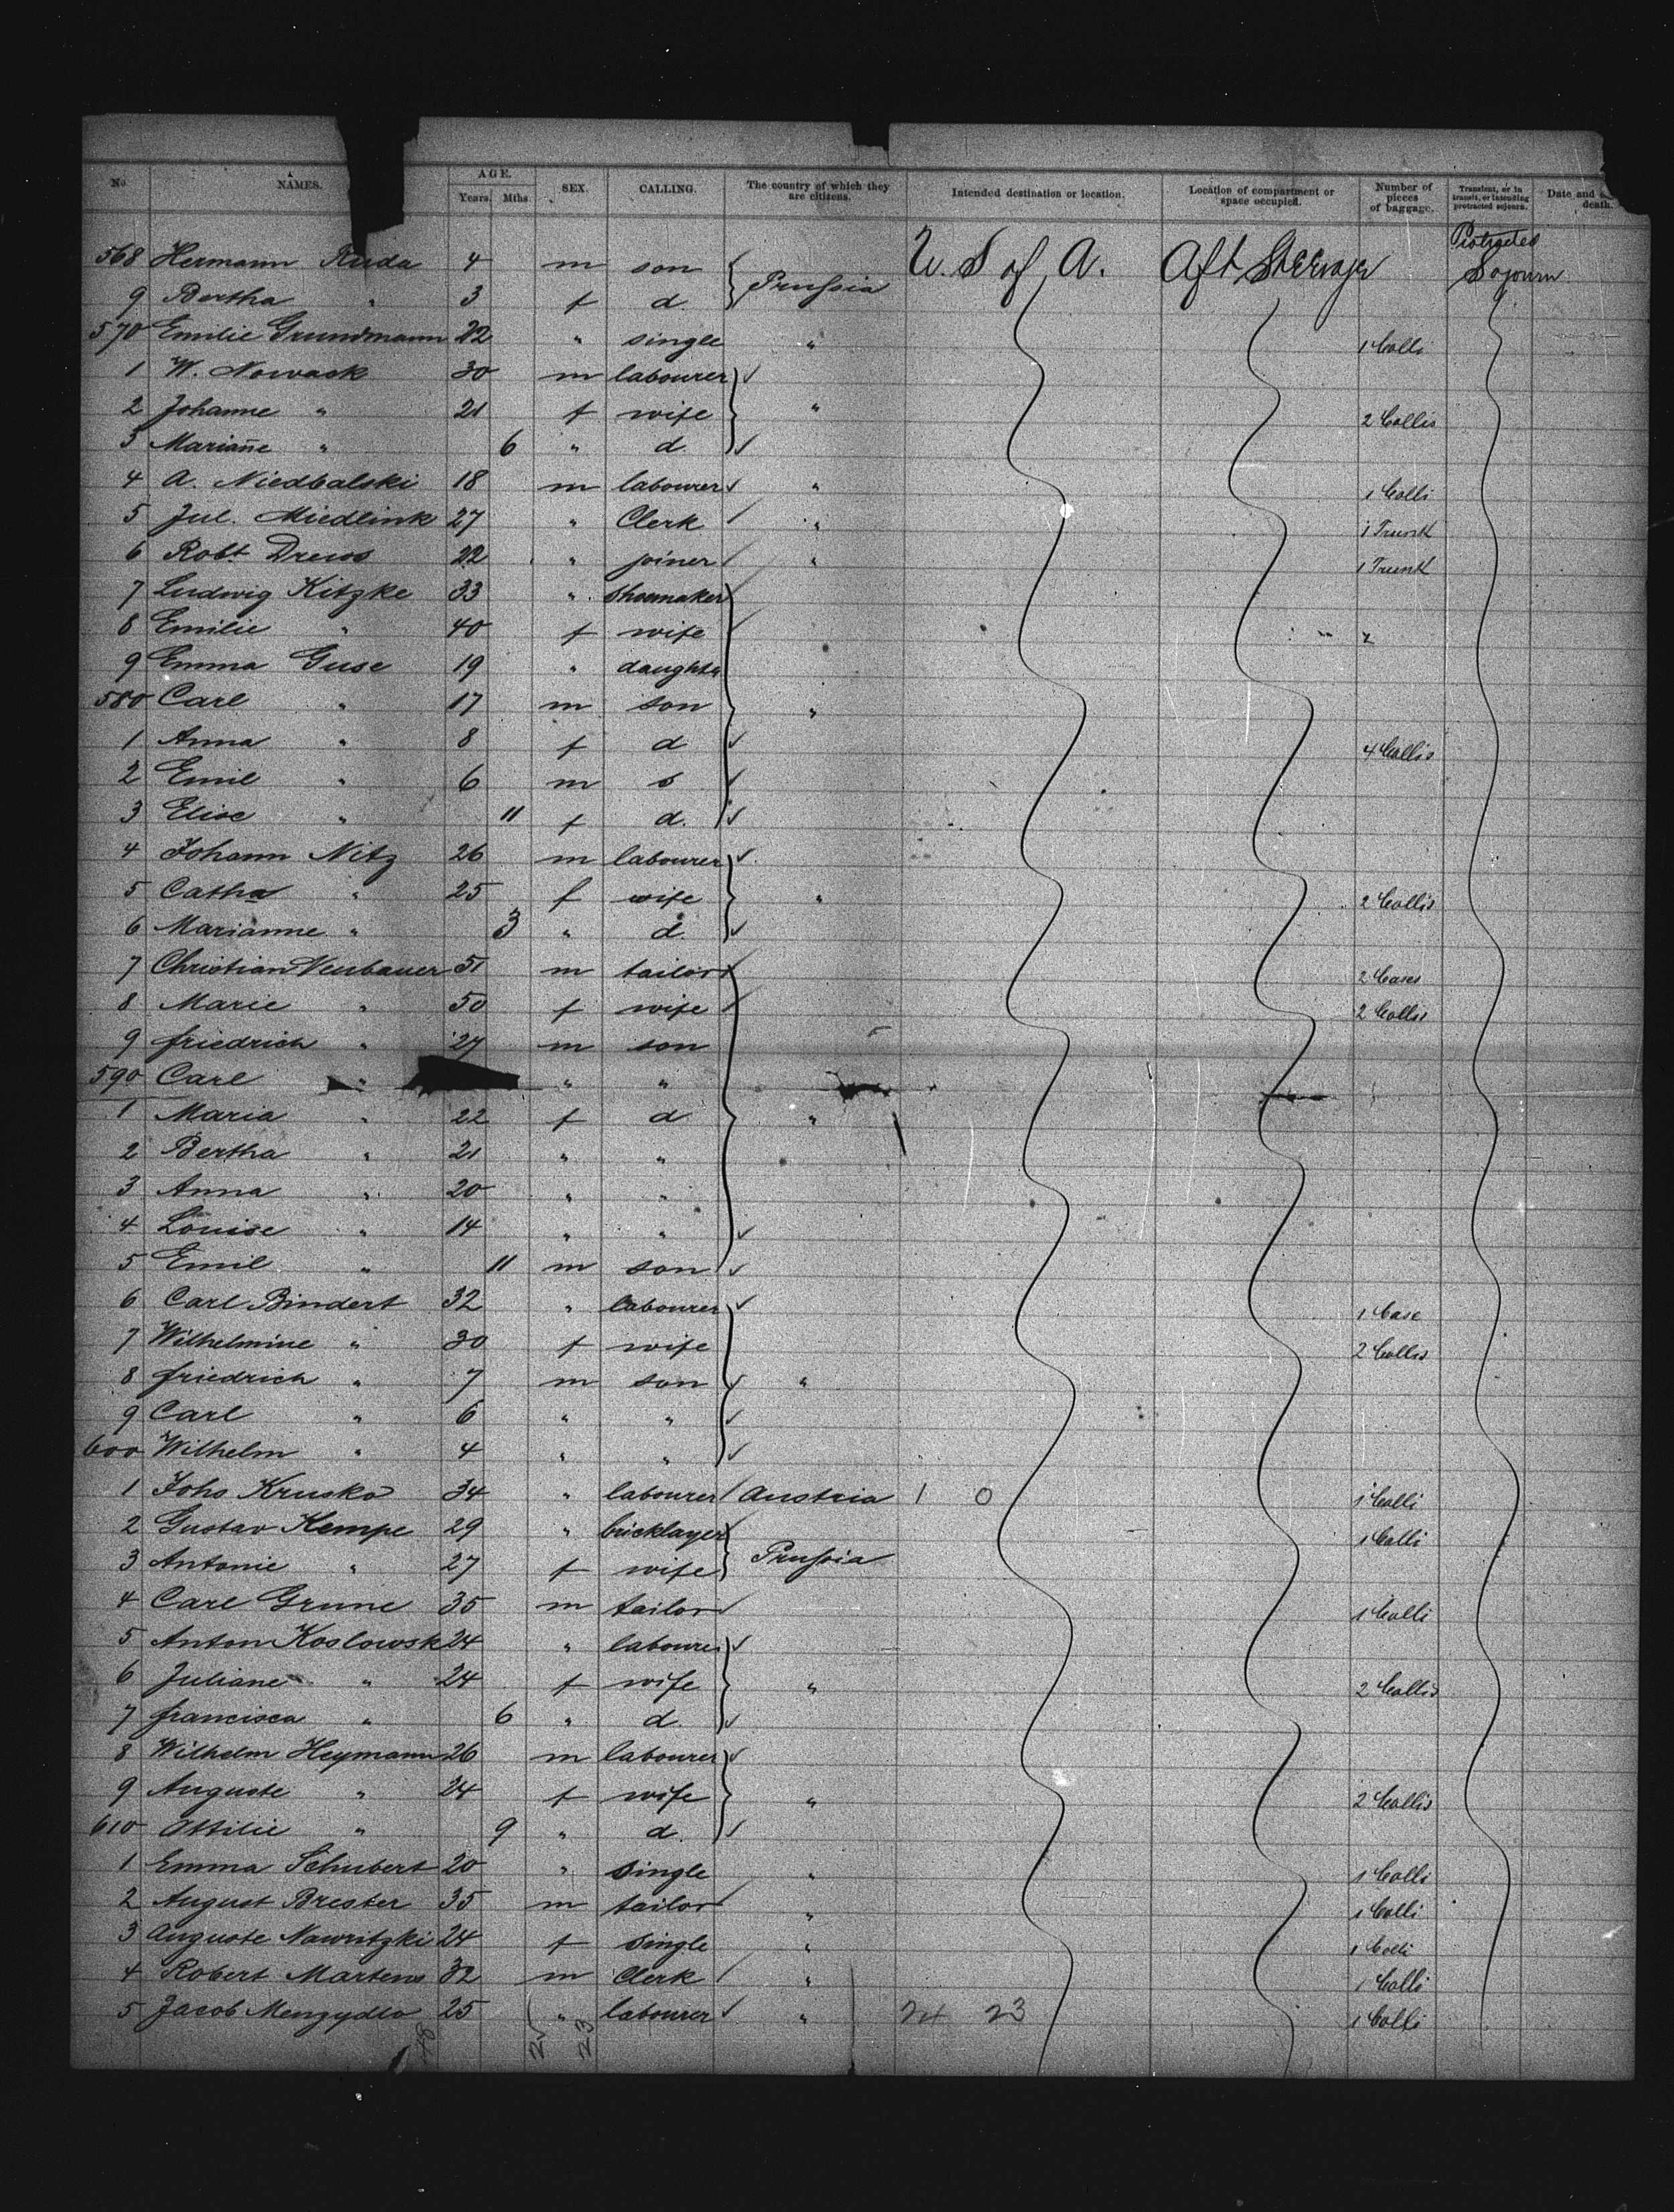 No. NAMES. AGE. Years. Mths. SEX. CALLING. The country of which they are citizens. Intended destination or location. Location of compartment or space occupied. Number of pieces of baggage. Transient, or in transit, or intending protracted sojourn. Date and death.
568 Hermann Ruda 4 m son Prussia U. S of A. Aft Steerage Protracted Sojourn
9 Bertha " 3 f d.
570 Emilie Grundmann 22 " single " 1 Colli
1 W. Nowack 30 m labourer
2 Johanne " 21 f wife " 2 Collis
3 Marian̄e " 6 " d.
4 A. Niedbalski 18 m labourer " 1 Colli
5 Jul. Miedlink 27 " Clerk " 1 Trunk
6 Robt Drews 22 " joiner " 1 Trunk
7 Ludwig Kitzke 33 " Shoemaker
8 Emilie " 40 f wife
9 Emma Guse 19 " daughter
580 Carl " 17 m son "
1 Anna " 8 f d 4 Collis
2 Emil " 6 m s
3 Elise " 11 f d.
4 Johann Nitz 26 m labourer
5 Catha " 25 f wife " 2 Collis
6 Marianne " 3 " d.
7 Christian Neubauer 51 m tailor 2 Cases
8 Marie " 50 f wife 2 Collis
9 friedrich " 27 m son
590 Carl " " "
1 Maria " 22 f d "
2 Bertha " 21 " "
3 Anna " 20 " "
4 Louise " 14 " "
5 Emil " 11 m son
6 Carl Bindert 32 " labourer 1 Case
7 Wilhelmine " 30 f wife 2 Collis
8 friedrich " 7 m son "
9 Carl " 6 " "
600 Wilhelm " 4 " "
1 Johs Krusko 34 " labourer Austria 1 0 1 Colli
2 Gustav Kempe 29 " bricklayer 1 Colli
3 Antonie " 27 f wife Prussia
4 Carl Grune 35 m tailor 1 Colli
5 Anton Koslowsk 24 " labourer
6 Juliane " 24 f wife " 2 Collis
7 francisca " 6 " d.
8 Wilhelm Heymann 26 m labourer
9 Auguste " 24 f wife " 2 Collis
610 Ottilie " 9 " d.
1 Emma Schubert 20 " single " 1 Colli
2 August Brester 35 m tailor " 1 Colli
3 Auguste Nawritzki 24 f single " 1 Colli
4 Robert Martens 32 m Clerk " 1 Colli
5 Jacob Menzydlo 25 " labourer " 24 23 1 Colli
48 25 23